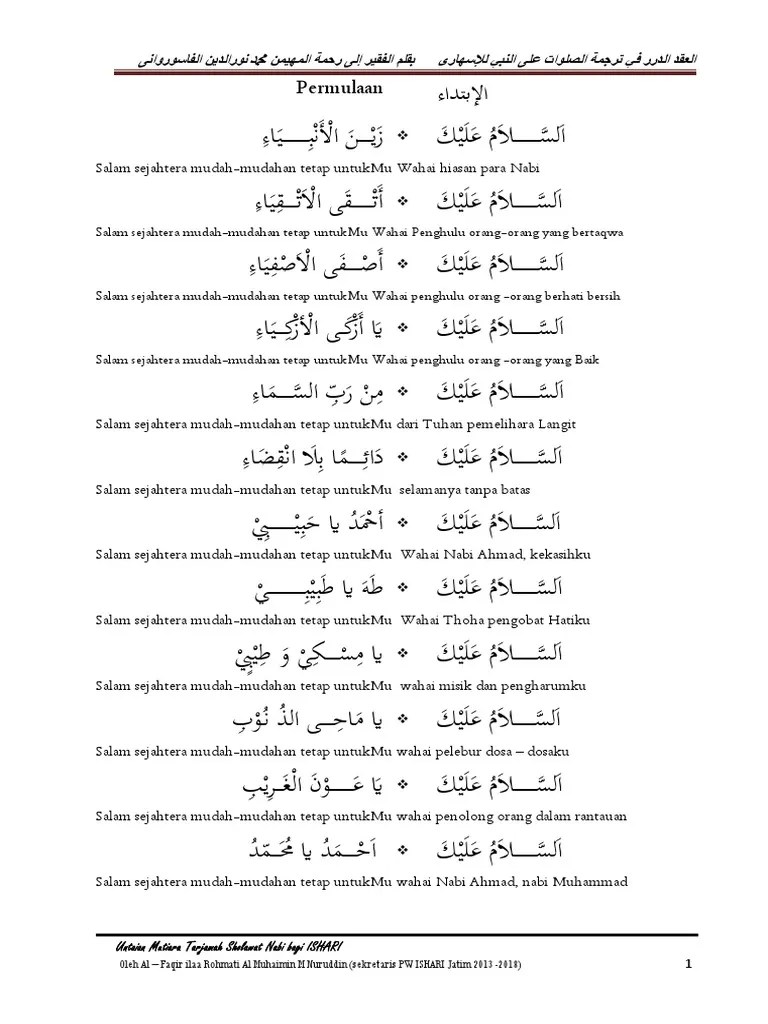 العقد الدرر في ترجمة الصلوات على النبي للإسهارى بقلم الفقير إلى رحمة المهيمن محمد نورالدين الفاسوروانى
Permulaan الإبتداء
اَلسَّـــــلاَمُ عَلَيْكَ ❖ زَيْـــنَ الْأَنْبِـــــيَاءِ
Salam sejahtera mudah-mudahan tetap untukMu Wahai hiasan para Nabi
اَلسَّـــــلاَمُ عَلَيْكَ ❖ أَتْـــقَى الْاَتْـــقِيَاءِ
Salam sejahtera mudah-mudahan tetap untukMu Wahai Penghulu orang-orang yang bertaqwa
اَلسَّـــــلاَمُ عَلَيْكَ ❖ أَصْـــفَى الْاَصْفِيَاءِ
Salam sejahtera mudah-mudahan tetap untukMu Wahai penghulu orang -orang berhati bersih
اَلسَّـــــلاَمُ عَلَيْكَ ❖ يَا أَزْكَـى الْأَزْكِـــيَاءِ
Salam sejahtera mudah-mudahan tetap untukMu Wahai penghulu orang -orang yang Baik
اَلسَّـــــلاَمُ عَلَيْكَ ❖ مِنْ رَبِّ السَّـــمَاءِ
Salam sejahtera mudah-mudahan tetap untukMu dari Tuhan pemelihara Langit
اَلسَّـــــلاَمُ عَلَيْكَ ❖ دَائِـــمًا بِلَا انْقِضَاءِ
Salam sejahtera mudah-mudahan tetap untukMu selamanya tanpa batas
اَلسَّـــــلاَمُ عَلَيْكَ ❖ أَحْمَدُ يا حَبِيْـــــبِيْ
Salam sejahtera mudah-mudahan tetap untukMu Wahai Nabi Ahmad, kekasihku
اَلسَّـــــلاَمُ عَلَيْكَ ❖ طَهَ يا طَبِيْبِـــــيْ
Salam sejahtera mudah-mudahan tetap untukMu Wahai Thoha pengobat Hatiku
اَلسَّـــــلاَمُ عَلَيْكَ ❖ يا مِسْـــكِيْ وَ طِيْبِيْ
Salam sejahtera mudah-mudahan tetap untukMu wahai misik dan pengharumku
اَلسَّـــــلاَمُ عَلَيْكَ ❖ يا مَاحِـــى الذُّ نُوْبِ
Salam sejahtera mudah-mudahan tetap untukMu wahai pelebur dosa – dosaku
اَلسَّـــــلاَمُ عَلَيْكَ ❖ يَا عَـــوْنَ الْغَـرِيْبِ
Salam sejahtera mudah-mudahan tetap untukMu wahai penolong orang dalam rantauan
اَلسَّـــــلاَمُ عَلَيْكَ ❖ اَحْـــمَدُ يا مُحَـــمَّدُ
Salam sejahtera mudah-mudahan tetap untukMu wahai Nabi Ahmad, nabi Muhammad
Untaian Matiara Tarjamah Sholawat Nabi bagi ISHARI
Oleh Al – Faqir ilaa Rohmati Al Muhaimin M Nuruddin (sekretaris PW ISHARI Jatim 2013 -2018) 1